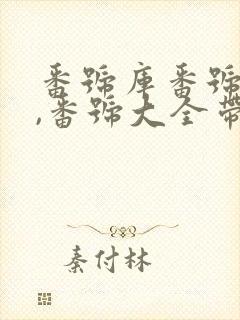 番號庫番號
,番號大全帶
秦付林